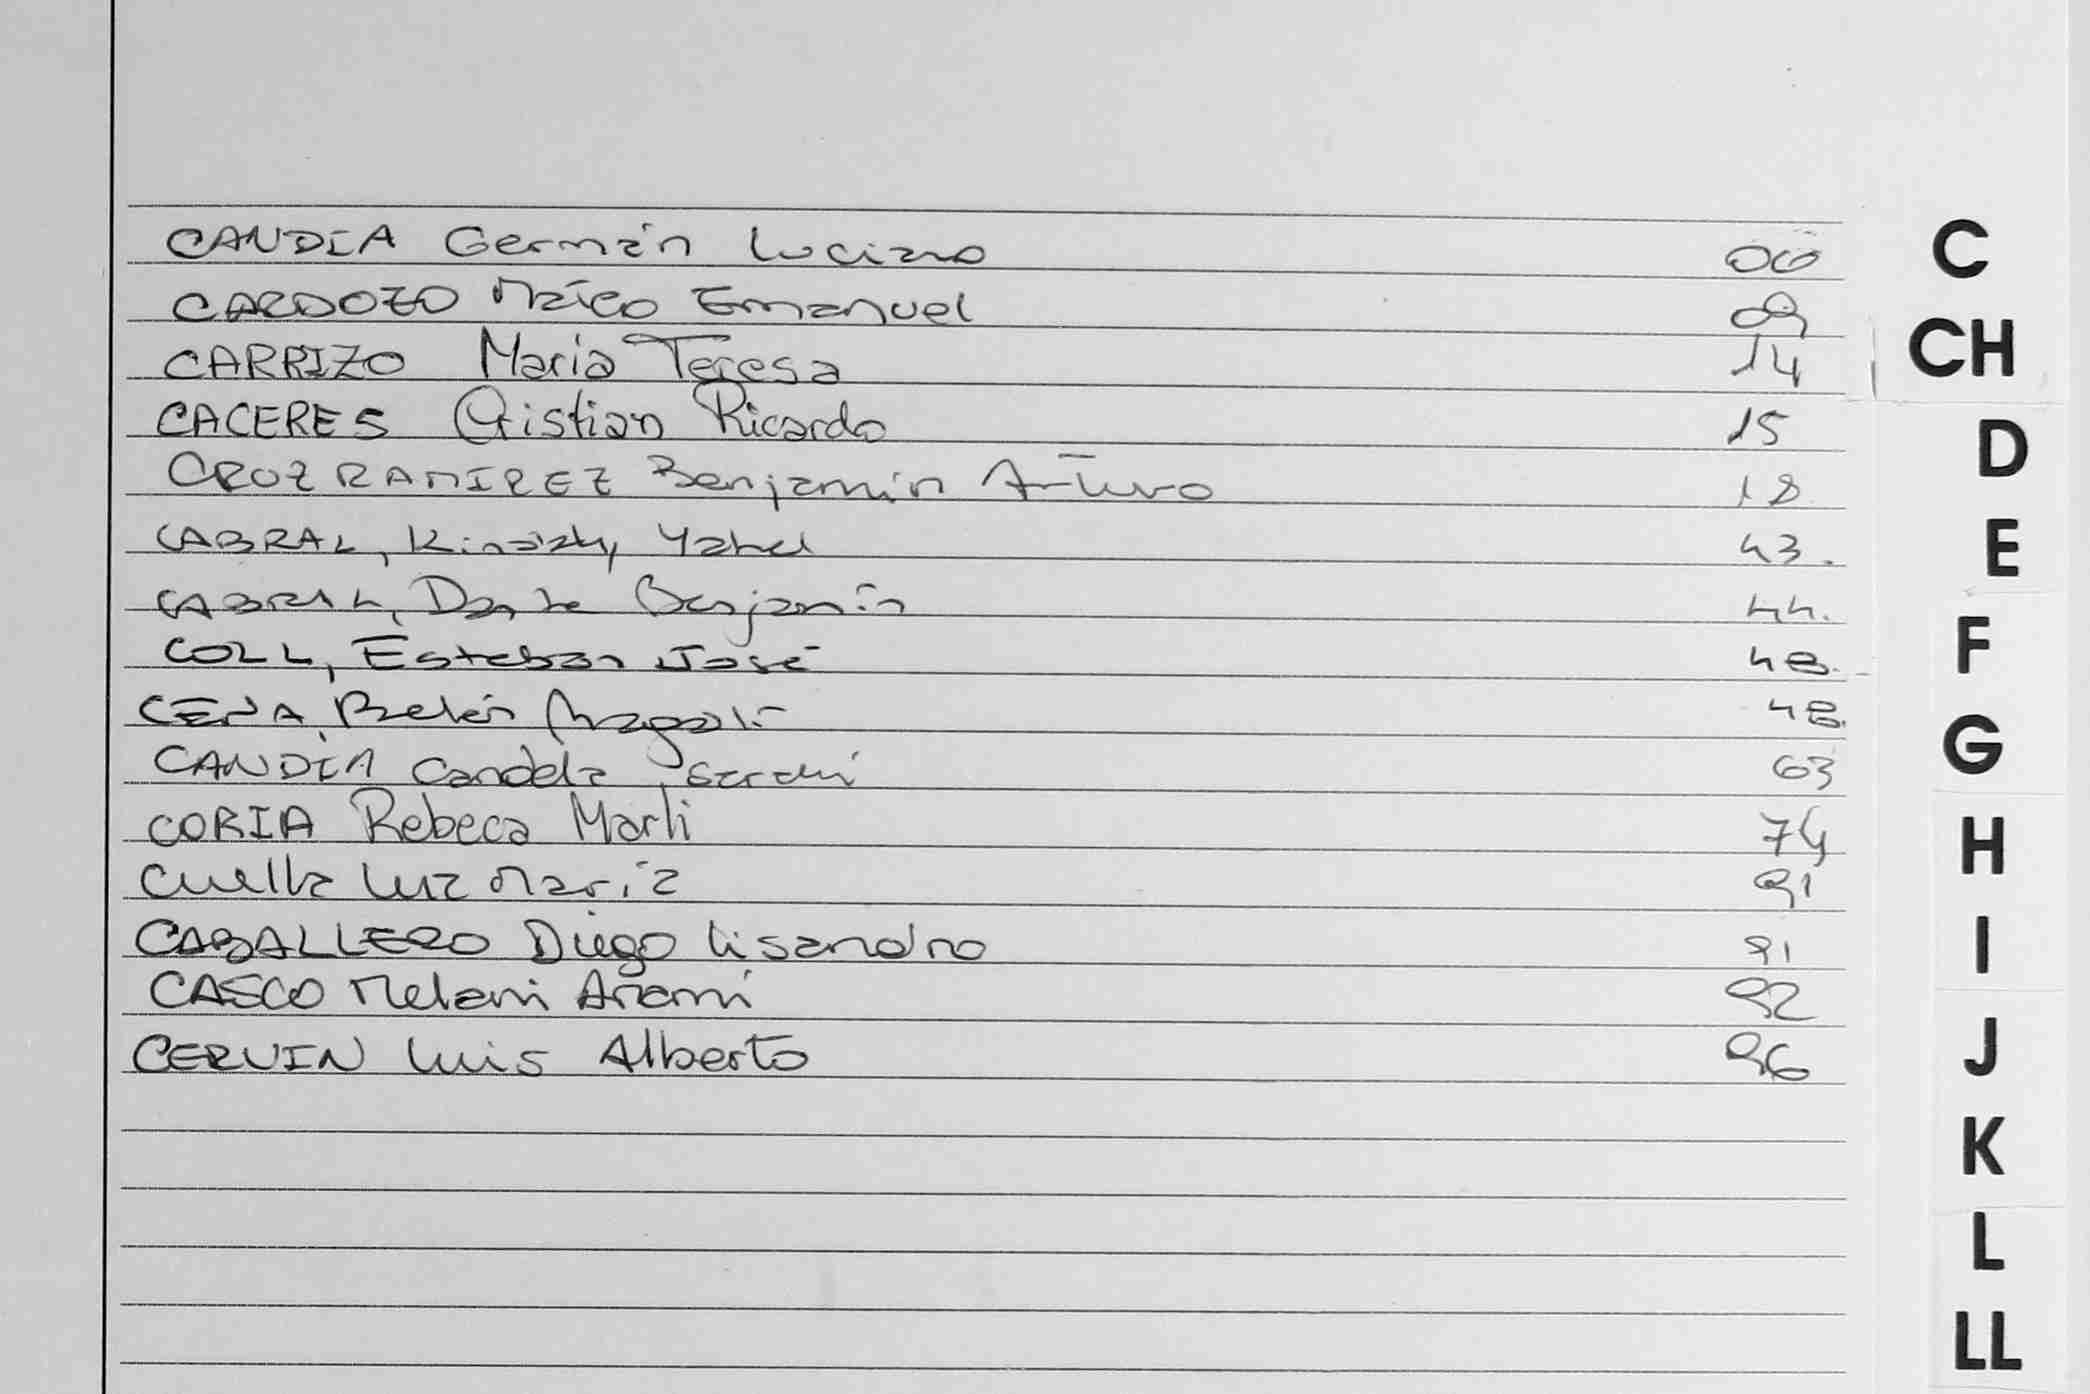 CANDIA Germán Luciano 06 C
CARDOZO Maico Emanuel 09
CARRIZO Maria Teresa 14 CH
CACERES Cristian Ricardo 15 D
CRUZ RAMIREZ Benjamín Arturo 18
CABRAL, Yahel 43. E
CABRAL, Dante Benjamín 44.
COLL, Esteban José 48. F
CENA, Belén Magalí 48. G
CANDIA Candela 63
CORIA Rebeca Marli 74 H
Cuella Luz María 91
CABALLERO Diego Lisandro 91 I
CASCO Melani Anamí 92
CERVIN Luis Alberto 96 J
K
L
LL